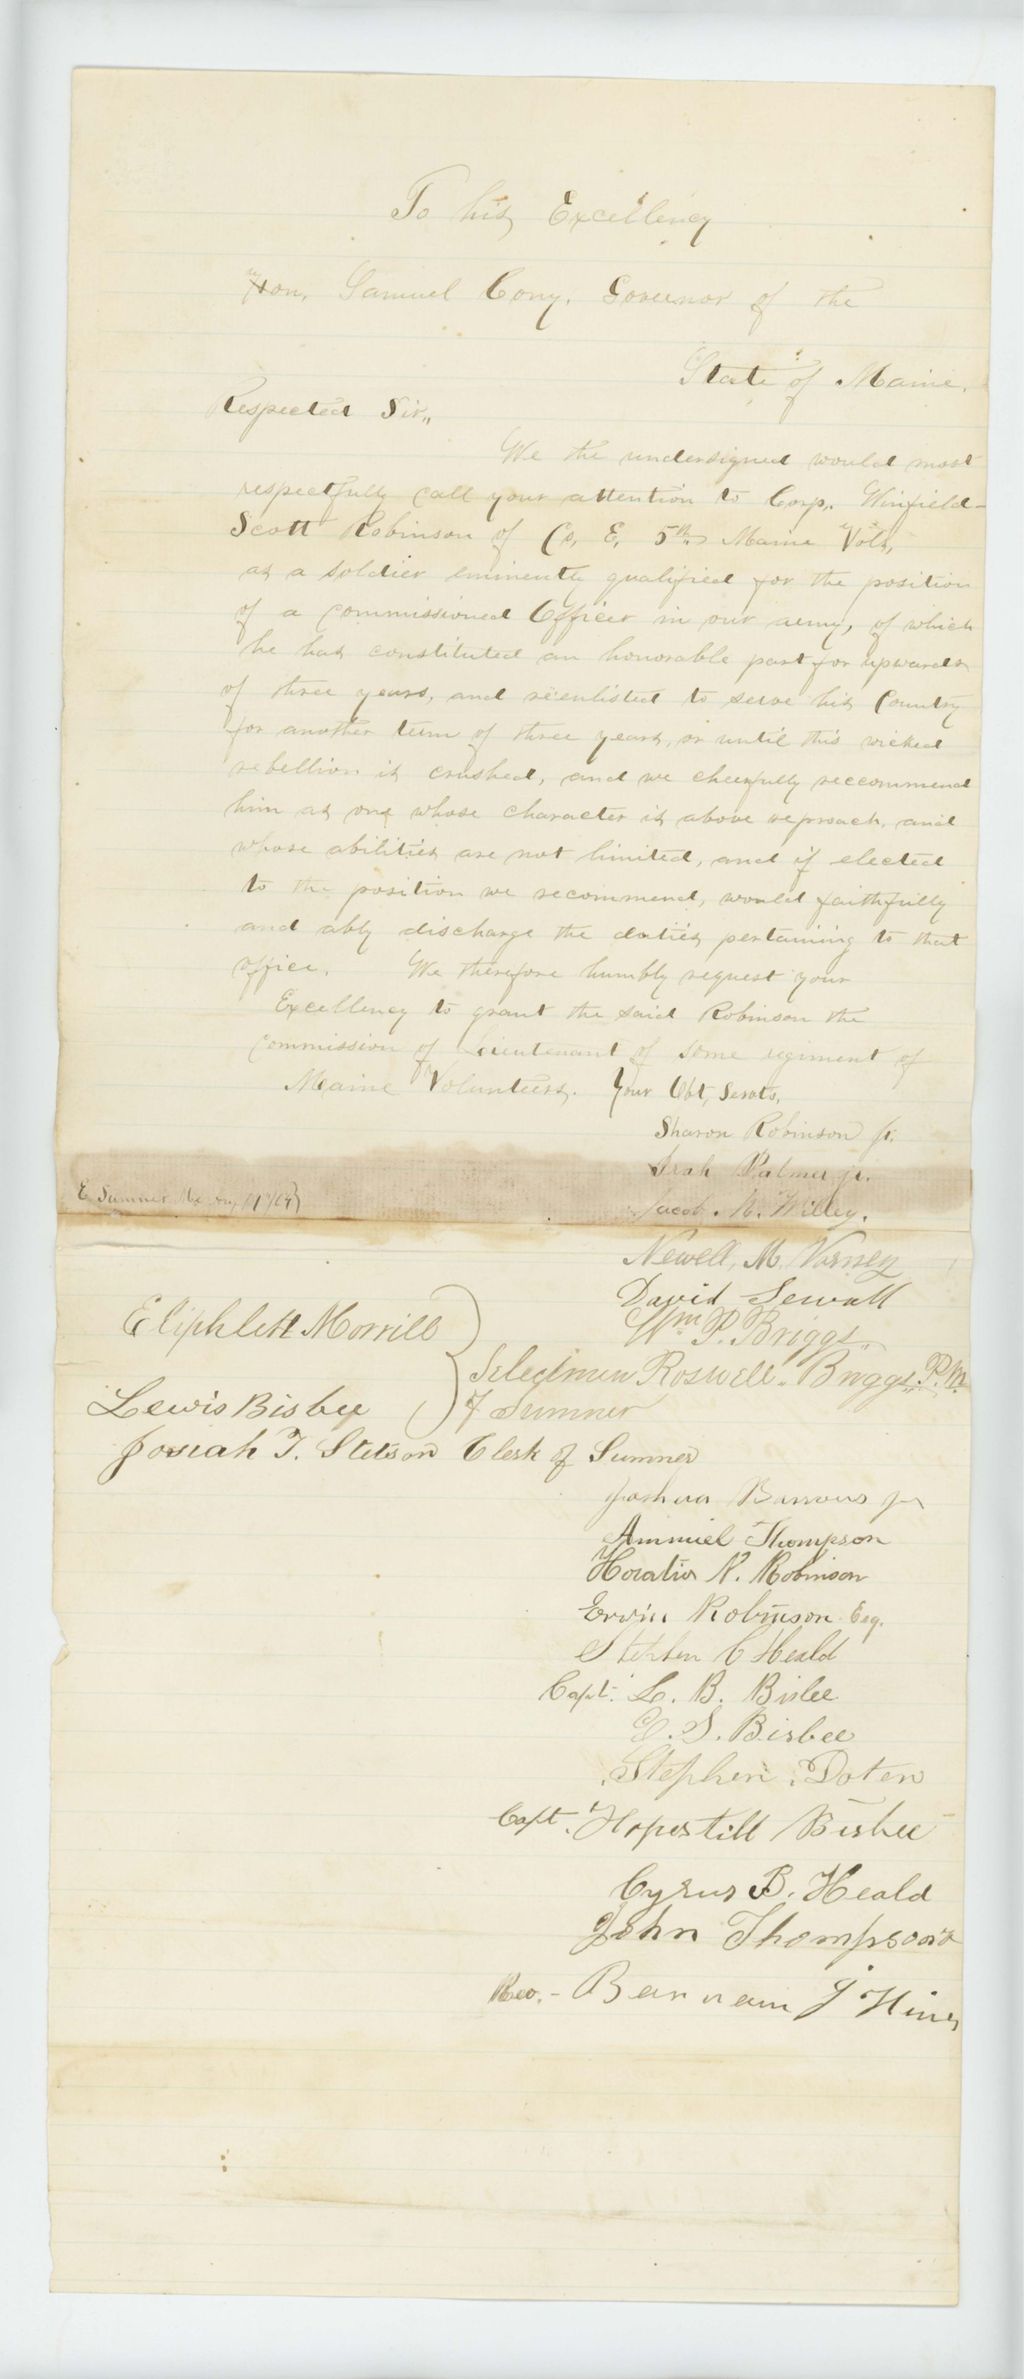 To his Excellency
Hon. Samuel Cony, Governor of the
State of Maine.
Respected Sir,,
We the undersigned would most
respectfully call your attention to Corp. Winfield-
Scott Robinson of Co, E, 5th Maine Vols,
as a soldier eminently qualified for the position
of a commissioned Officer in our army, of which
he has constituted an honorable part for upwards
of three years, and reënlisted to serve his Country
for another term of three years, or until this wicked
rebellion is crushed, and we cheerfully reccommend
him as one whose character is above reproach, and
whose abilities are not limited, and if elected
to the position we recommend, would faithfully
and ably discharge the duties pertaining to that
office. We therefore humbly request your
Excellency to grant the said Robinson the
commission of Lieutenant of some regiment of
Maine Volunteers. Your Obt, Servts,
Sharon Robinson jr.
Palmer jr.
E Sumner Me
Jacob. N. Willey.
Newell, M. Varney
David Sewall
Wm P. Briggs
Eliphlett Morrill
Selectmen Roswell Briggs, P.M.
Lewis Bisbee
of Sumner
Josiah T. Stetson Clerk of Sumner
Joshua Barrows jr
Ammiel Thompson
Horatio N. Robinson
Erwin Robinson Esq.
Stephen C Heald
Capt. L. B. Bisbee
S. Bisbee
Stephen Doten
Capt. Hopestill Bisbee
Cyrus B. Heald
John Thompson
Rev. - Barnam J Hines